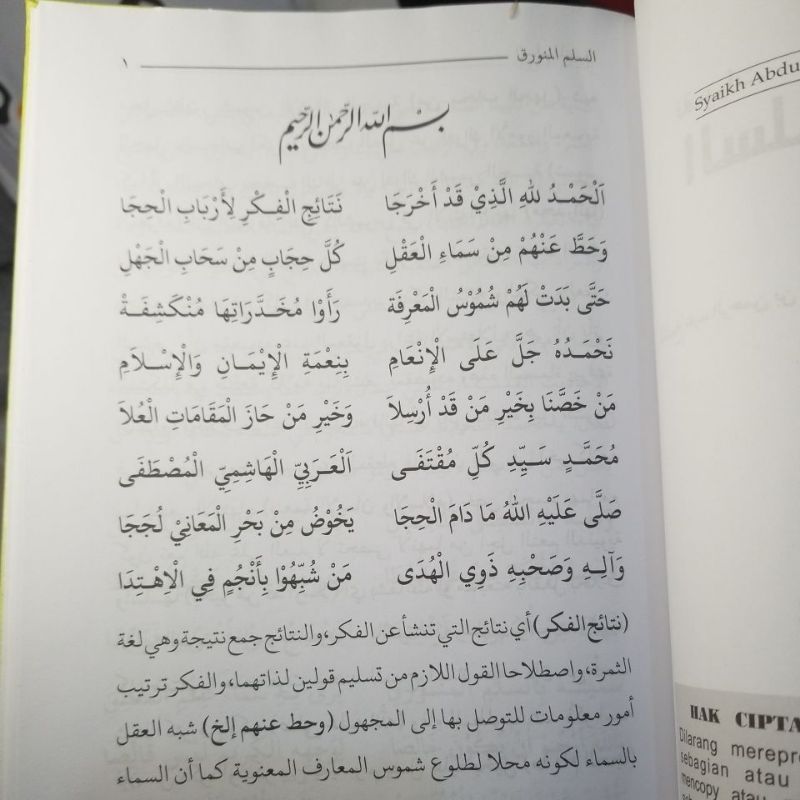 السلم المنورق ١
بسم الله الرحمن الرحيم
اَلْحَمْدُ لِلهِ الَّذِيْ قَدْ أَخْرَجَا نَتَائِجِ الْفِكْرِ لِأَرْبَابِ الْحِجَا
وَحَطَّ عَنْهُمْ مِنْ سَمَاءِ الْعَقْلِ كُلَّ حِجَابٍ مِنْ سَحَابِ الْجَهْلِ
حَتَّى بَدَتْ لَهُمْ شُمُوْسُ الْمَعْرِفَة رَأَوْا مُخَدَّرَاتِهَا مُنْكَشِفَةْ
نَحْمَدُهُ جَلَّ عَلَى الْإِنْعَامِ بِنِعْمَةِ الْإِيْمَانِ وَالْإِسْلَامِ
مَنْ خَصَّنَا بِخَيْرِ مَنْ قَدْ أُرْسِلاَ وَخَيْرِ مَنْ حَازَ الْمَقَامَاتِ الْعُلاَ
مُحَمَّدٍ سَيِّدِ كُلِّ مُقْتَفَى اَلْعَرَبِيِّ الْهَاشِمِيِّ الْمُصْطَفَى
صَلَّى عَلَيْهِ اللهُ مَا دَامَ الْحِجَا يَخُوْضُ مِنْ بَحْرِ الْمَعَانِيْ لُجَجَا
وَآلِهِ وَصَحْبِهِ ذَوِي الْهُدَى مَنْ شُبِّهُوْا بِأَنْجُمٍ فِي الْاِهْتِدَا
(نتائج الفكر) أي نتائج التي تنشأ عن الفكر، والنتائج جمع نتيجة وهي لغة
الثمرة، واصطلاحا القول اللازم من تسليم قولين لذاتهما، والفكر ترتيب
أمور معلومات للتوصل بها إلى المجهول (وحط عنهم إلخ) شبه العقل
بالسماء لكونه محلا لطلوع شموس المعارف المعنوية كما أن السماء
Syaikh Abdu
HAK CIPTA
Dilarang merepro
sebagian atau
mencopy atau